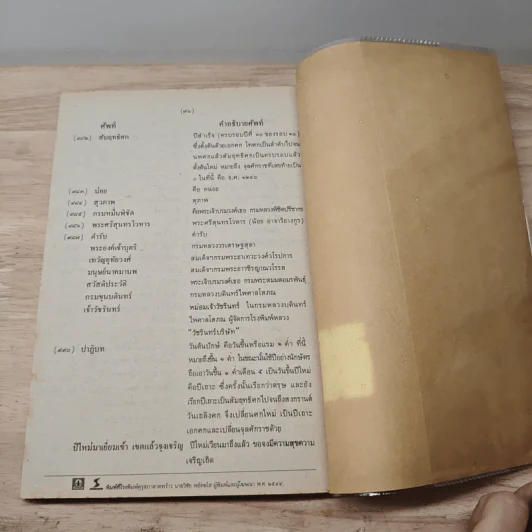 (๗๖)
ศัพท์ คำอธิบายศัพท์
(๓๘๒) สัมฤทธิศก ปีสำเร็จ (ครบรอบปีที่ ๑๐ ของรอบ ๑๐)
ซึ่งตั้งต้นด้วยเอกศก โทศกเป็นลำดับไปจน
นพศกแล้วสัมฤทธิศกเป็นครบรอบแล้ว
ตั้งต้นใหม่ หมายถึง จุลศักราชที่เลขท้ายเป็น
๐ ในที่นี้ คือ จ.ศ. ๑๒๔๐
(๓๘๓) น่อย คือ หน่อย
(๓๘๔) สุวภาพ สุภาพ
(๓๘๕) กรมหมื่นพิชิต คือพระเจ้าบรมวงศ์เธอ กรมหลวงพิชิตปรีชากร
(๓๘๖) พระศรีสุนทรโวหาร พระศรีสุนทรโวหาร (น้อย อาจาริยางกูร)
(๓๘๗) ตำรับ ตำรับ
พระองค์เจ้าบุตรี กรมหลวงวรเสรฐสุดา
เทวัญอุทัยวงศ์ สมเด็จฯกรมพระยาเทวะวงศ์วโรปการ
มนุษย์นาคมานพ สมเด็จฯกรมพระยาวชิรญาณวโรรส
ศวัสดิประวัติ พระเจ้าบรมวงศ์เธอ กรมพระสมมตอมรพันธุ์
กรมขุนบดินทร์ กรมหลวงบดินทร์ไพศาลโสภณ
เจ้าวัชรินทร์ หม่อมเจ้าวัชรินทร์ ในกรมหลวงบดินทร์
ไพศาลโสภณ ผู้จัดการโรงพิมพ์หลวง
"วัชรินทร์บริษัท"
(๓๘๘) ปาฏิบท วันต้นปักษ์ คือวันขึ้นหรือแรม ๑ ค่ำ ที่นี้
หมายถึงขึ้น ๑ ค่ำ ในขณะนั้นใช้ปีอย่างนักษัตร
ถือเอาวันขึ้น ๑ ค่ำเดือน ๕ เป็นวันขึ้นปีใหม่
คือปีเถาะ ซึ่งครั้งนั้นเรียกว่าตรุษ และยัง
เรียกปีเถาะเป็นสัมฤทธิศกไปจนถึงสงกรานต์
วันเถลิงศก จึงเปลี่ยนศกใหม่ เป็นปีเถาะ
เอกศกและเปลี่ยนจุลศักราชด้วย
ปีใหม่มาเยี่ยมเข้า เขตแล้วจูงเจริญ ปีใหม่เวียนมาถึงแล้ว ขอจงมีความสุขความ
เจริญเถิด
พิมพ์ที่โรงพิมพ์คุรุสภาลาดพร้าว